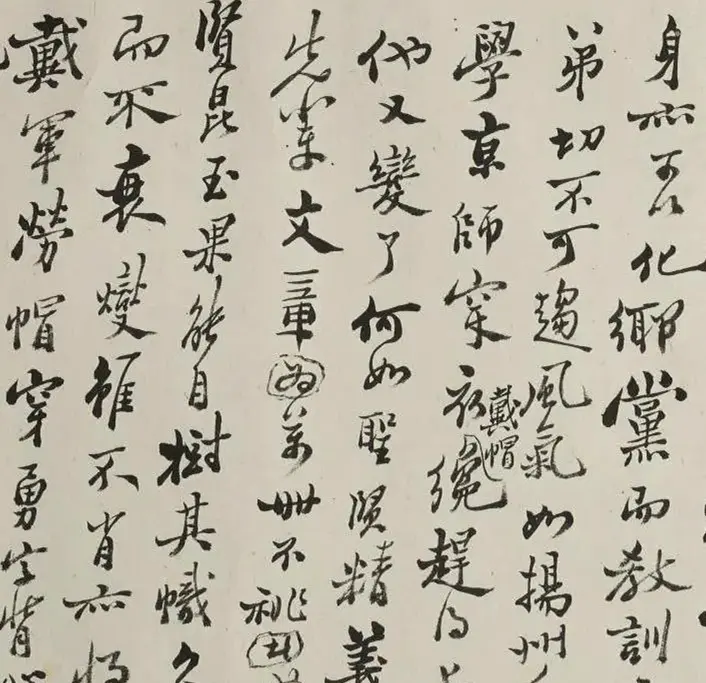 身亦可以化鄉黨而教訓
弟切不可趨風氣如揚州
學京師穿衣戴帽纔趕得上
他又變了何如聖賢精義
先輩文章為萬世不祧
賢昆玉果能自樹其幟久
而不衰燮雖不肖亦將
戴軍勞帽穿勇字背